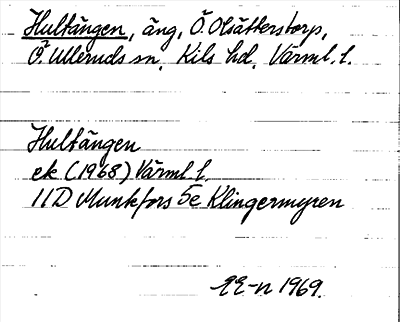 Hultängen, äng, Ö. Olsätterstorp,
Ö. Ulleruds sn. Kils hd. Värml. l.
Hultängen
ek (1968) Värml l.
11D Munkfors 5e Klingermyren
EE-n 1969.